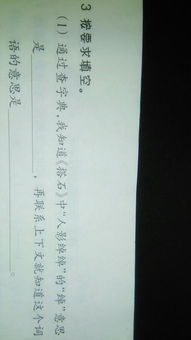 3 按要求填空。
(1)通过查字典,我知道《搭石》中“人影绰绰”的“绰”意思
是________,再联系上下文就知道这个词
语的意思是________。